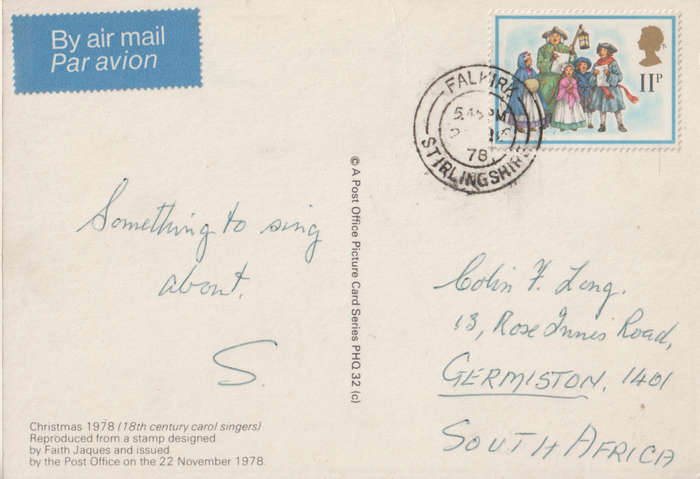 By air mail
Par avion
11P
FALKIRK
5 45 PM
78
STIRLINGSHIRE
© A Post Office Picture Card Series PHQ 32 (c)
Something to sing
about.
S.
Colin F. Long.
13, Rose Innis Road,
GERMISTON. 1401
SOUTH AFRICA
Christmas 1978 (18th century carol singers)
Reproduced from a stamp designed
by Faith Jaques and issued
by the Post Office on the 22 November 1978.